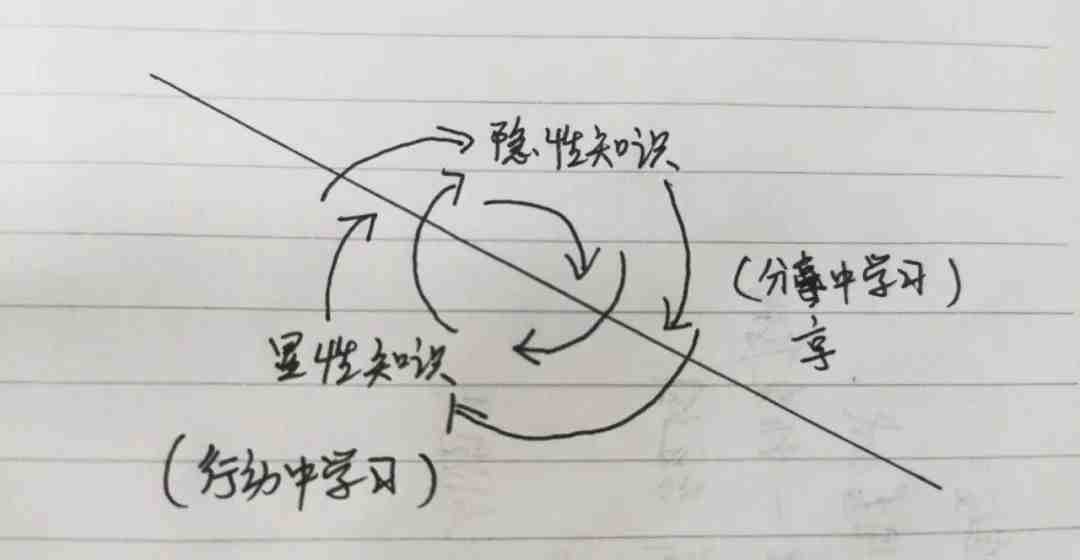 隐性知识
(分享中学习)
享
显性知识
(行动中学习)